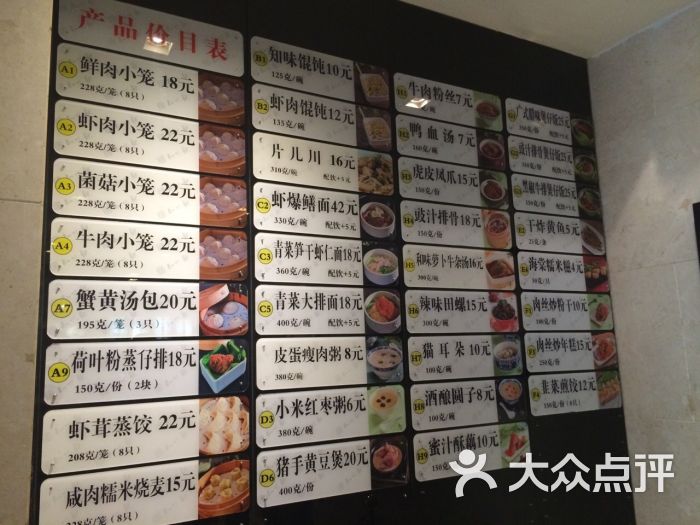 产品价目表
A1 鲜肉小笼 18元
228克/笼（8只）
A2 虾肉小笼 22元
228克/笼（8只）
A3 菌菇小笼 22元
228克/笼（8只）
A4 牛肉小笼 22元
228克/笼（8只）
A7 蟹黄汤包20元
195克/笼（3只）
A9 荷叶粉蒸仔排18元
150克/份（2块）
虾茸蒸饺 22元
208克/笼（8只）
咸肉糯米烧麦15元
228克/笼（8只）
B1 知味馄饨10元
125克/碗
B2 虾肉馄饨12元
135克/碗
片儿川 16元
310克/碗 配饮+5元
C2 虾爆鳝面42元
330克/碗 配饮+5元
C3 青菜笋干虾仁面18元
360克/碗 配饮+5元
C5 青菜大排面18元
400克/碗 配饮+5元
皮蛋瘦肉粥 8元
380克/碗
D3 小米红枣粥6元
380克/碗
D6 猪手黄豆煲20元
400克/份
H1 牛肉粉丝7元
H2 鸭血汤 7元
160克/碗
H3 虎皮凤爪15元
150克/份
H4 豉汁排骨18元
150克/份
H5 和味萝卜牛杂汤16元
300克/碗
H6 辣味田螺15元
100克/碗
H7 猫耳朵 10元
100克/碗
H8 酒酿圆子8元
100克/碗
H9 蜜汁酥藕10元
150克/份
G1 广式腊味煲仔饭25元
350克/份 配饮+5元
G2 豉汁排骨煲仔饭25元
350克/份 配饮+5元
G3 黑椒牛排煲仔饭25元
350克/份 配饮+5元
E2 干炸黄鱼5元
25克/条
E4 海棠糯米糍4元
30克/只
F1 肉丝炒粉干10元
F3 肉丝炒年糕15元
F4 韭菜煎饺12元
大众点评